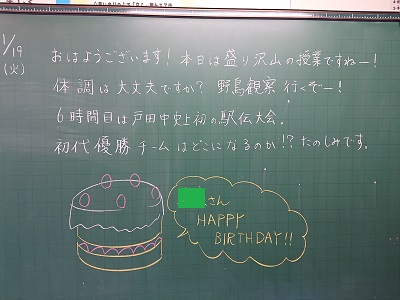 1/19
(火)
おはようございます！本日は盛り沢山の授業ですねー！
体調は大丈夫ですか？野鳥観察行くぞー！
6時間目は戸田中史上初の駅伝大会。
初代優勝チームはどこになるのか!?たのしみです。
さん
HAPPY
BIRTHDAY!!